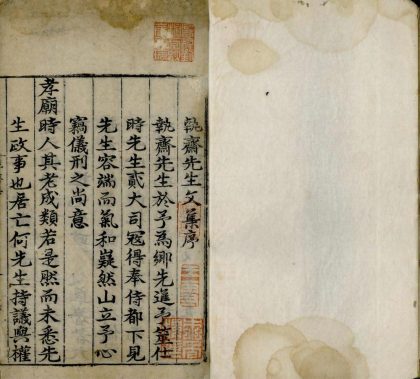 執齋先生文集序
執齋先生於予為鄉先進予筮仕
時先生貳大司冦得奉侍都下見
先生容端而氣和嶷然山立予心
竊儀刑之尚意
孝廟時人其老成類若是熙而未悉先
生政事也居亡何先生持議與權